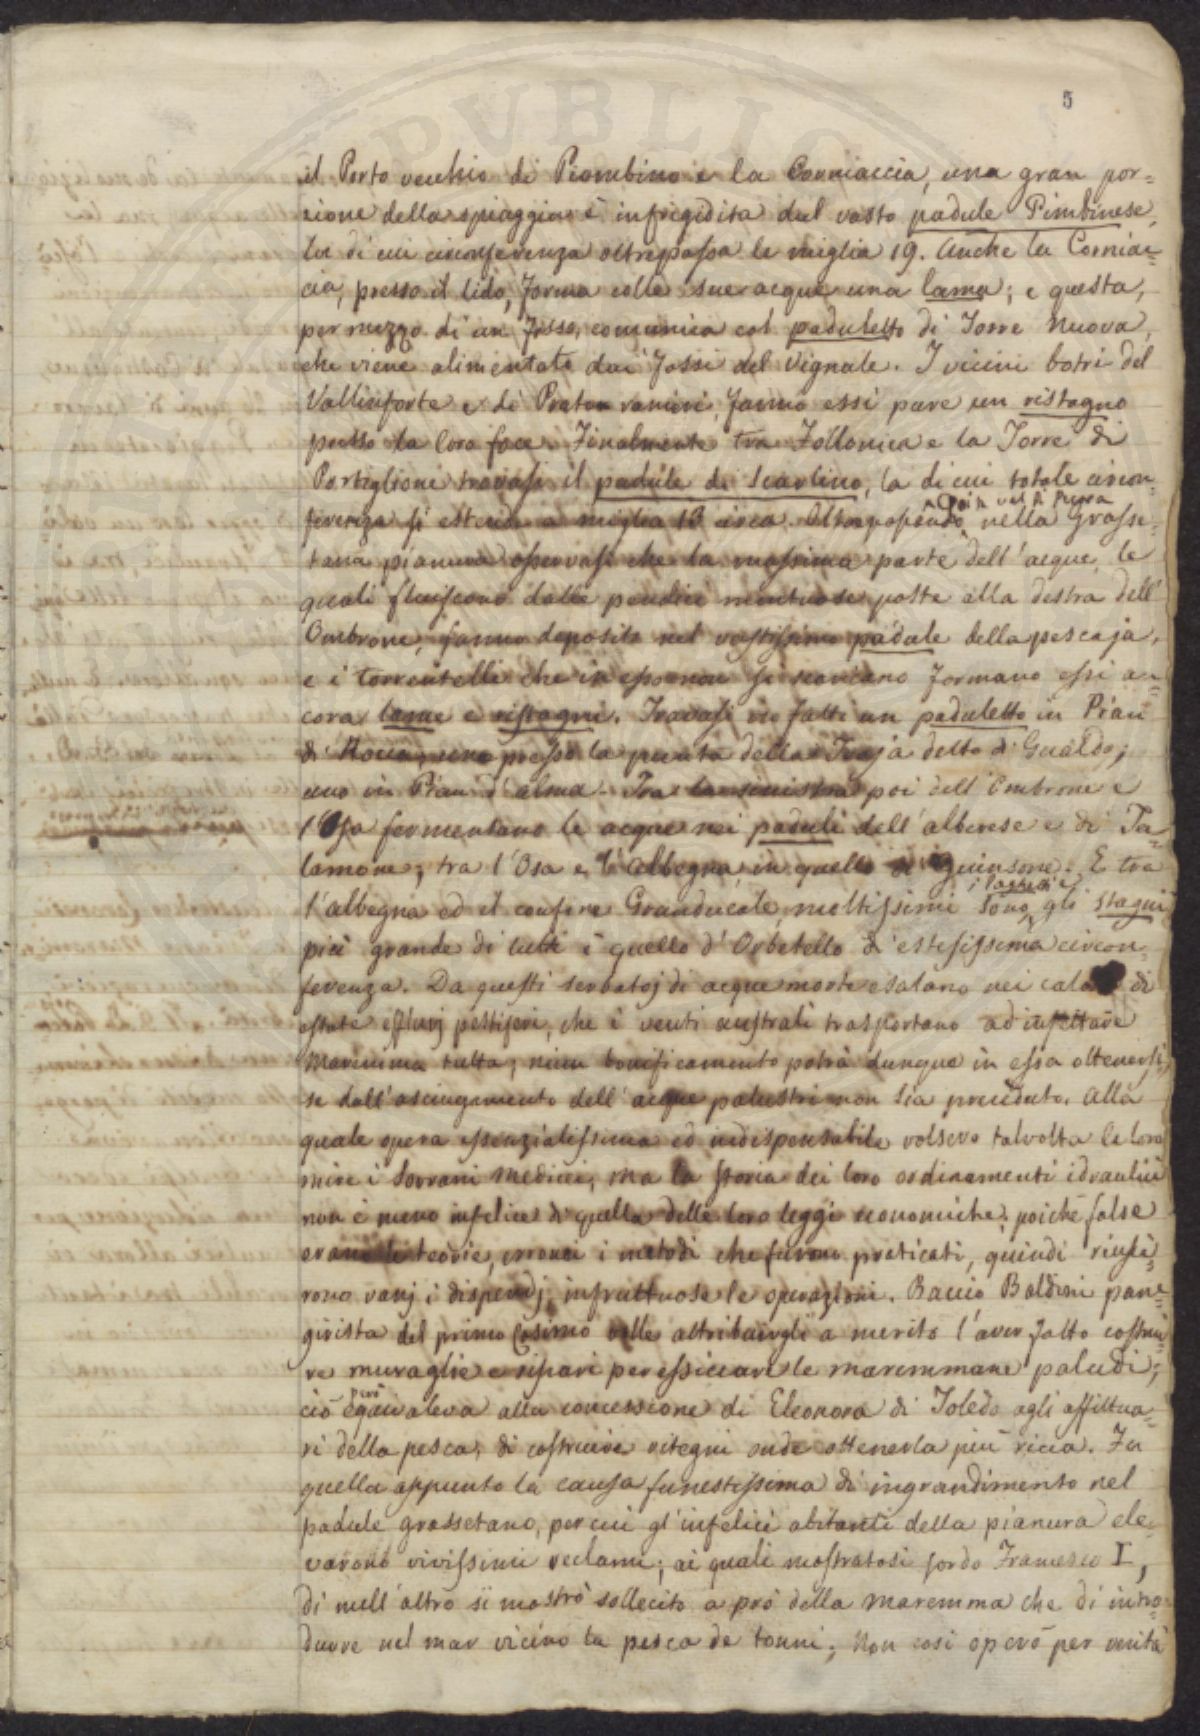 5
il Porto vecchio di Piombino e la Corniaccia, una gran por=
zione della spiaggia è infrigidita dal vasto padule Pimbinese,
la di cui circonferenza oltrepassa le miglia 19. Anche la Cornia=
cia, presso il lido, forma colle sue acque una lama; e questa,
per mezzo di un fosso, comunica col paduletto di Torre Nuova,
che viene alimentato dai fossi del Vignale. I vicini botri del
Vallinforte e di Prato ranieri, fanno essi pure un ristagno
presso la loro foce. Finalmente tra Follonica e la Torre di
Portiglioni trovasi il padule di Scarlino, la di cui totale circon=
ferenza si estende a miglia 13 circa. Oltrepassando nella Grosse=
tana pianura osservasi che la massima parte dell'acque, le
quali fluiscono dalle pendici montuose poste alla destra dell'
Ombrone, fanno deposito nel vastissimo padule della pescaja,
e i torrentelli che in esso non si scaricano formano essi an=
cora lame e ristagni. Trovasi in fatti un paduletto in Pian
di Rocca, uno presso la punta della Troja detto di Gualdo;
uno in Pian d'alma. Tra la sinistra poi dell'Ombrone e
l'Osa fermentano le acque nei paduli dell'alberese e di Ta=
lamone; tra l'Osa e l'Albegna, in quello di Guinzone. E tra
l'albegna ed il confine Granducale moltissimi sono gli stagni
più grande di tutti è quello d'Orbetello d'estesissima circon=
ferenza. Da questi serbatoj di acque morte esalano nei calori di
estate effluvj pestiferi, che i venti australi trasportano ad infettare
Maremma tutta; niun bonificamento potrà dunque in essa ottenersi,
se dall'asciugamento dell'acque palustri non sia preceduto. Alla
quale opera essenzialissima ed indispensabile volsero talvolta le loro
mire i Sovrani Medicei, ma la storia dei loro ordinamenti idraulici
non è meno infelice di quella delle loro leggi economiche; poichè false
erano le teorie, erronei i metodi che furono praticati, quindi riusci=
rono vanj i dispendj, infruttuose le operazioni. Baccio Baldini pane=
girista del primo Cosimo volle attribuirgli a merito l'aver fatto costrui=
re muraglie e ripari per essiccare le maremmane paludi;
ciò però equivaleva alla concessione di Eleonora di Toledo agli affittua=
ri della pesca, di costruire ritegni onde ottenerla più ricca. Fu
quella appunto la causa funestissima di ingrandimento nel
padule grossetano, per cui gl'infelici abitanti della pianura ele=
varono vivissimi reclami; ai quali mostratosi sordo Francesco I,
di null'altro si mostrò sollecito a prò della maremma che di intro=
durre nel mar vicino la pesca de tonni; Non così operò per verità